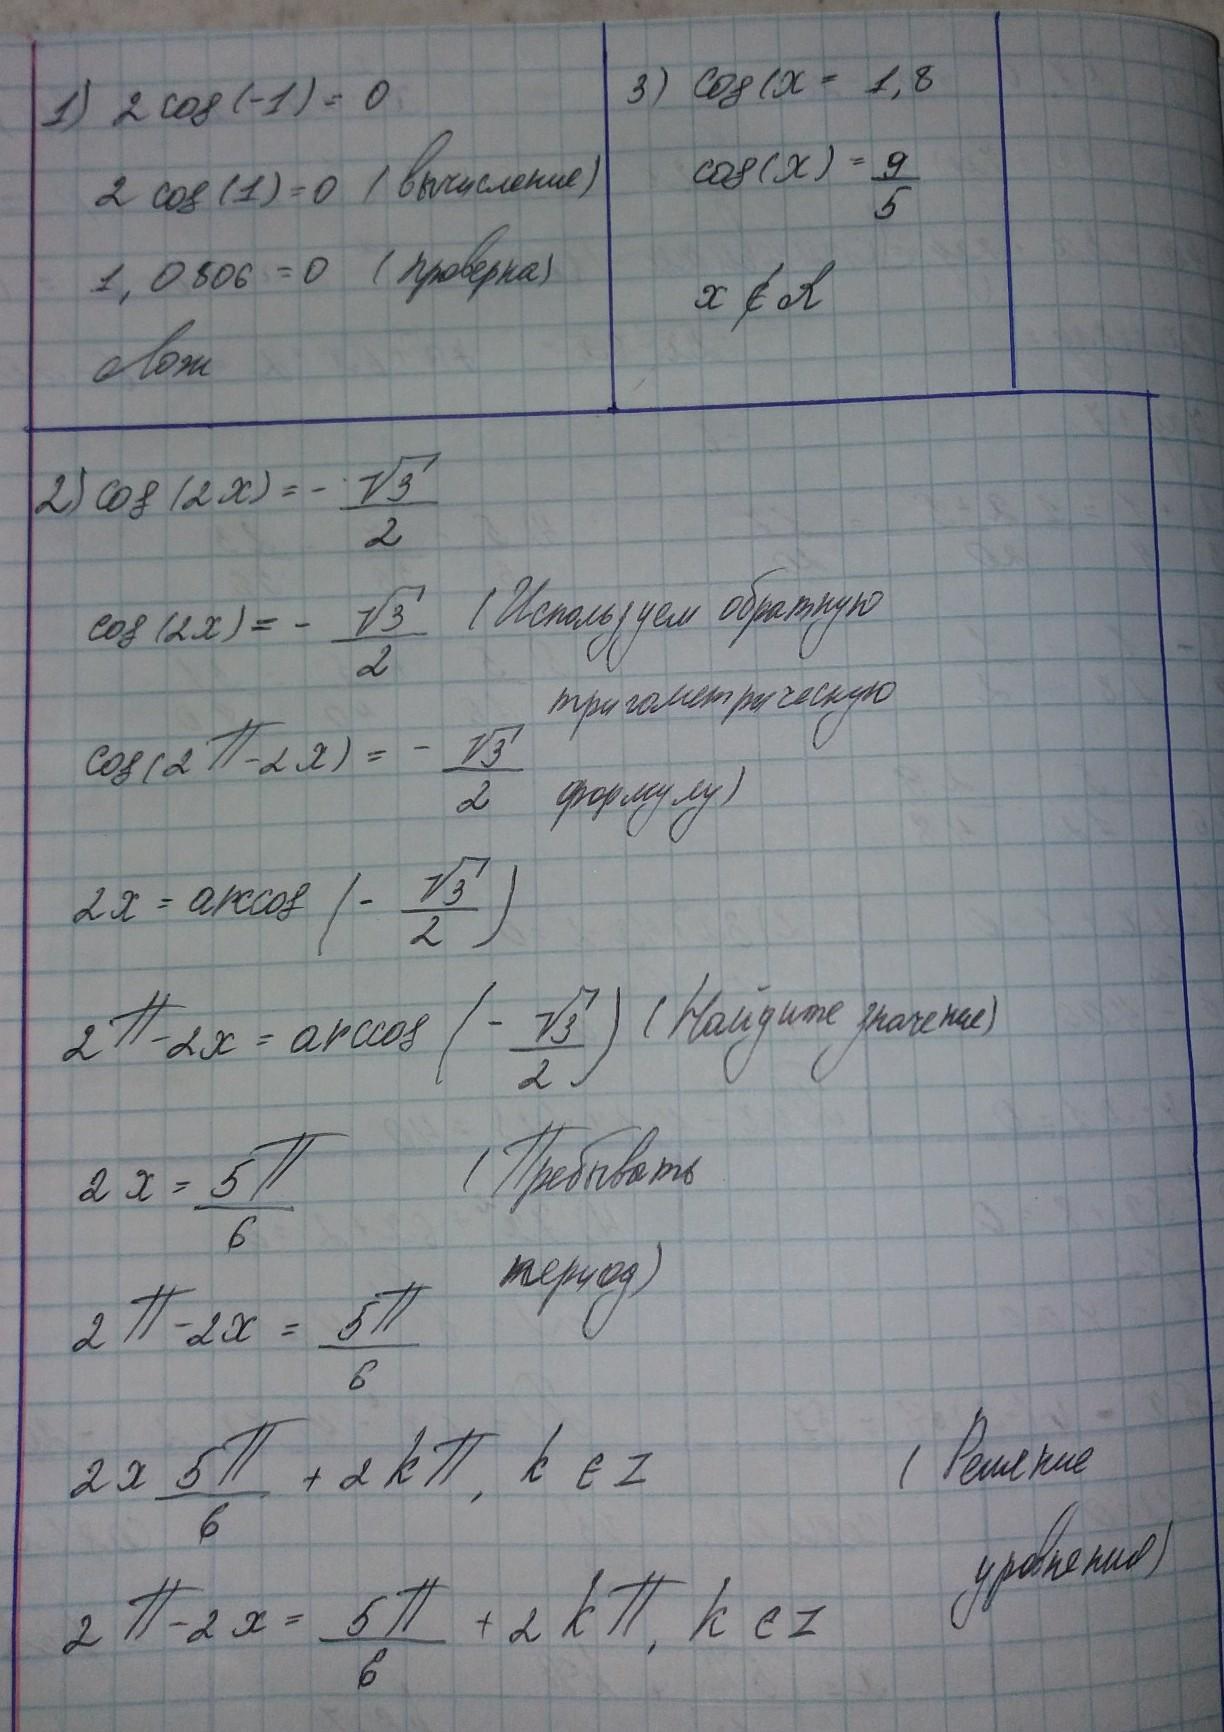 1) 2 cos(-1) = 0
2 cos(1) = 0 (вычисление)
1,0806 = 0 (проверка)
Лож
3) cos(x = 1,8
cos(x) = 9/5
x ∉ R
2) cos(2x) = - √3/2
cos(2x) = - √3/2 (Используем обратную
тригометрическую
cos(2π-2x) = - √3/2 формулу)
2x = arccos (- √3/2)
2π-2x = arccos (- √3/2) (Найдите значение)
2x = 5π/6 (Пребывать
период)
2π-2x = 5π/6
2x 5π/6 + 2kπ, k ∈ Z (Решение
уровнения)
2π-2x = 5π/6 + 2kπ, k ∈ Z